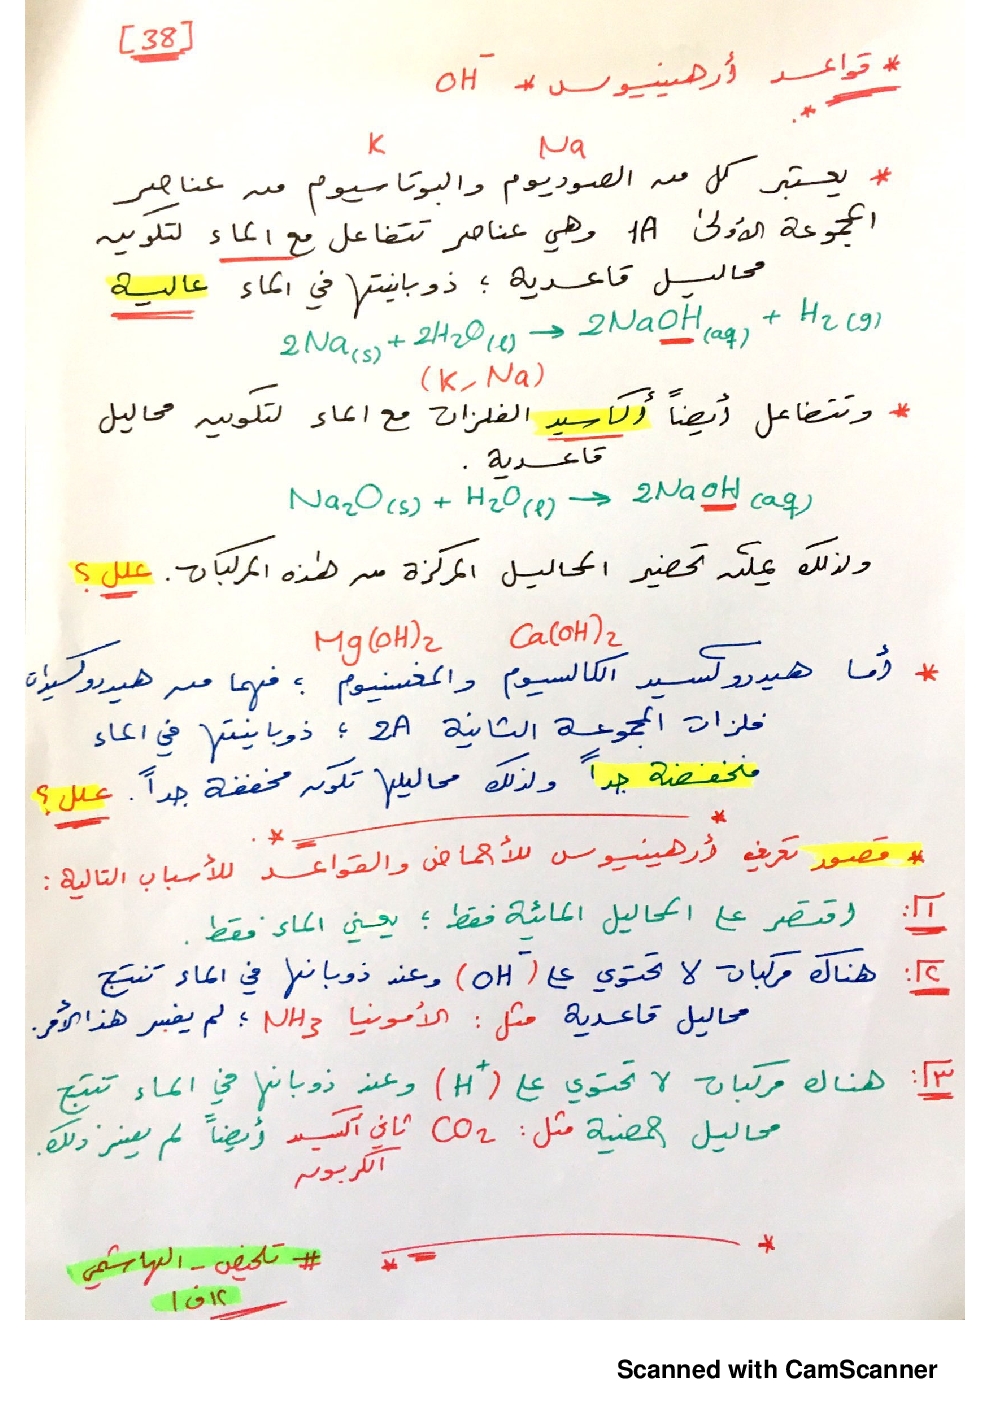 [38]
* قواعد أرهينيوس * OH⁻
K Na
* يعتبر كل من الصوديوم والبوتاسيوم من عناصر
المجموعة الأولى 1A وهي عناصر تتفاعل مع الماء لتكوين
محاليل قاعدية ؛ ذوبانيتها في الماء عالية
2Na(s) + 2H₂O(l) → 2NaOH(aq) + H₂(g)
(K, Na)
* وتتفاعل أيضاً أكاسيد الفلزات مع الماء لتكوين محاليل
قاعدية .
Na₂O(s) + H₂O(l) → 2NaOH(aq)
ولذلك يمكن تحضير المحاليل المركزة من هذه المركبات. علل؟
Mg(OH)₂ Ca(OH)₂
* أما هيدروكسيد الكالسيوم والمغنسيوم ؛ فهما من هيدروكسيدات
فلزات المجموعة الثانية 2A ؛ ذوبانيتها في الماء
منخفضة جداً ولذلك محاليلها تكون مخففة جداً. علل؟
* قصور تعريف أرهينيوس للأحماض والقواعد للأسباب التالية :
١: اقتصر على المحاليل المائية فقط ؛ يعني الماء فقط .
٢: هناك مركبات لا تحتوي على (OH⁻) وعند ذوبانها في الماء تنتج
محاليل قاعدية مثل : الأمونيا NH₃ ؛ لم يفسر هذا الأمر.
٣: هناك مركبات لا تحتوي على (H⁺) وعند ذوبانها في الماء تنتج
محاليل حمضية مثل : CO₂ ثاني أكسيد أيضاً لم يفسر ذلك.
الكربون
# تلخيص - الهاشمي
١٢ف١
Scanned with CamScanner